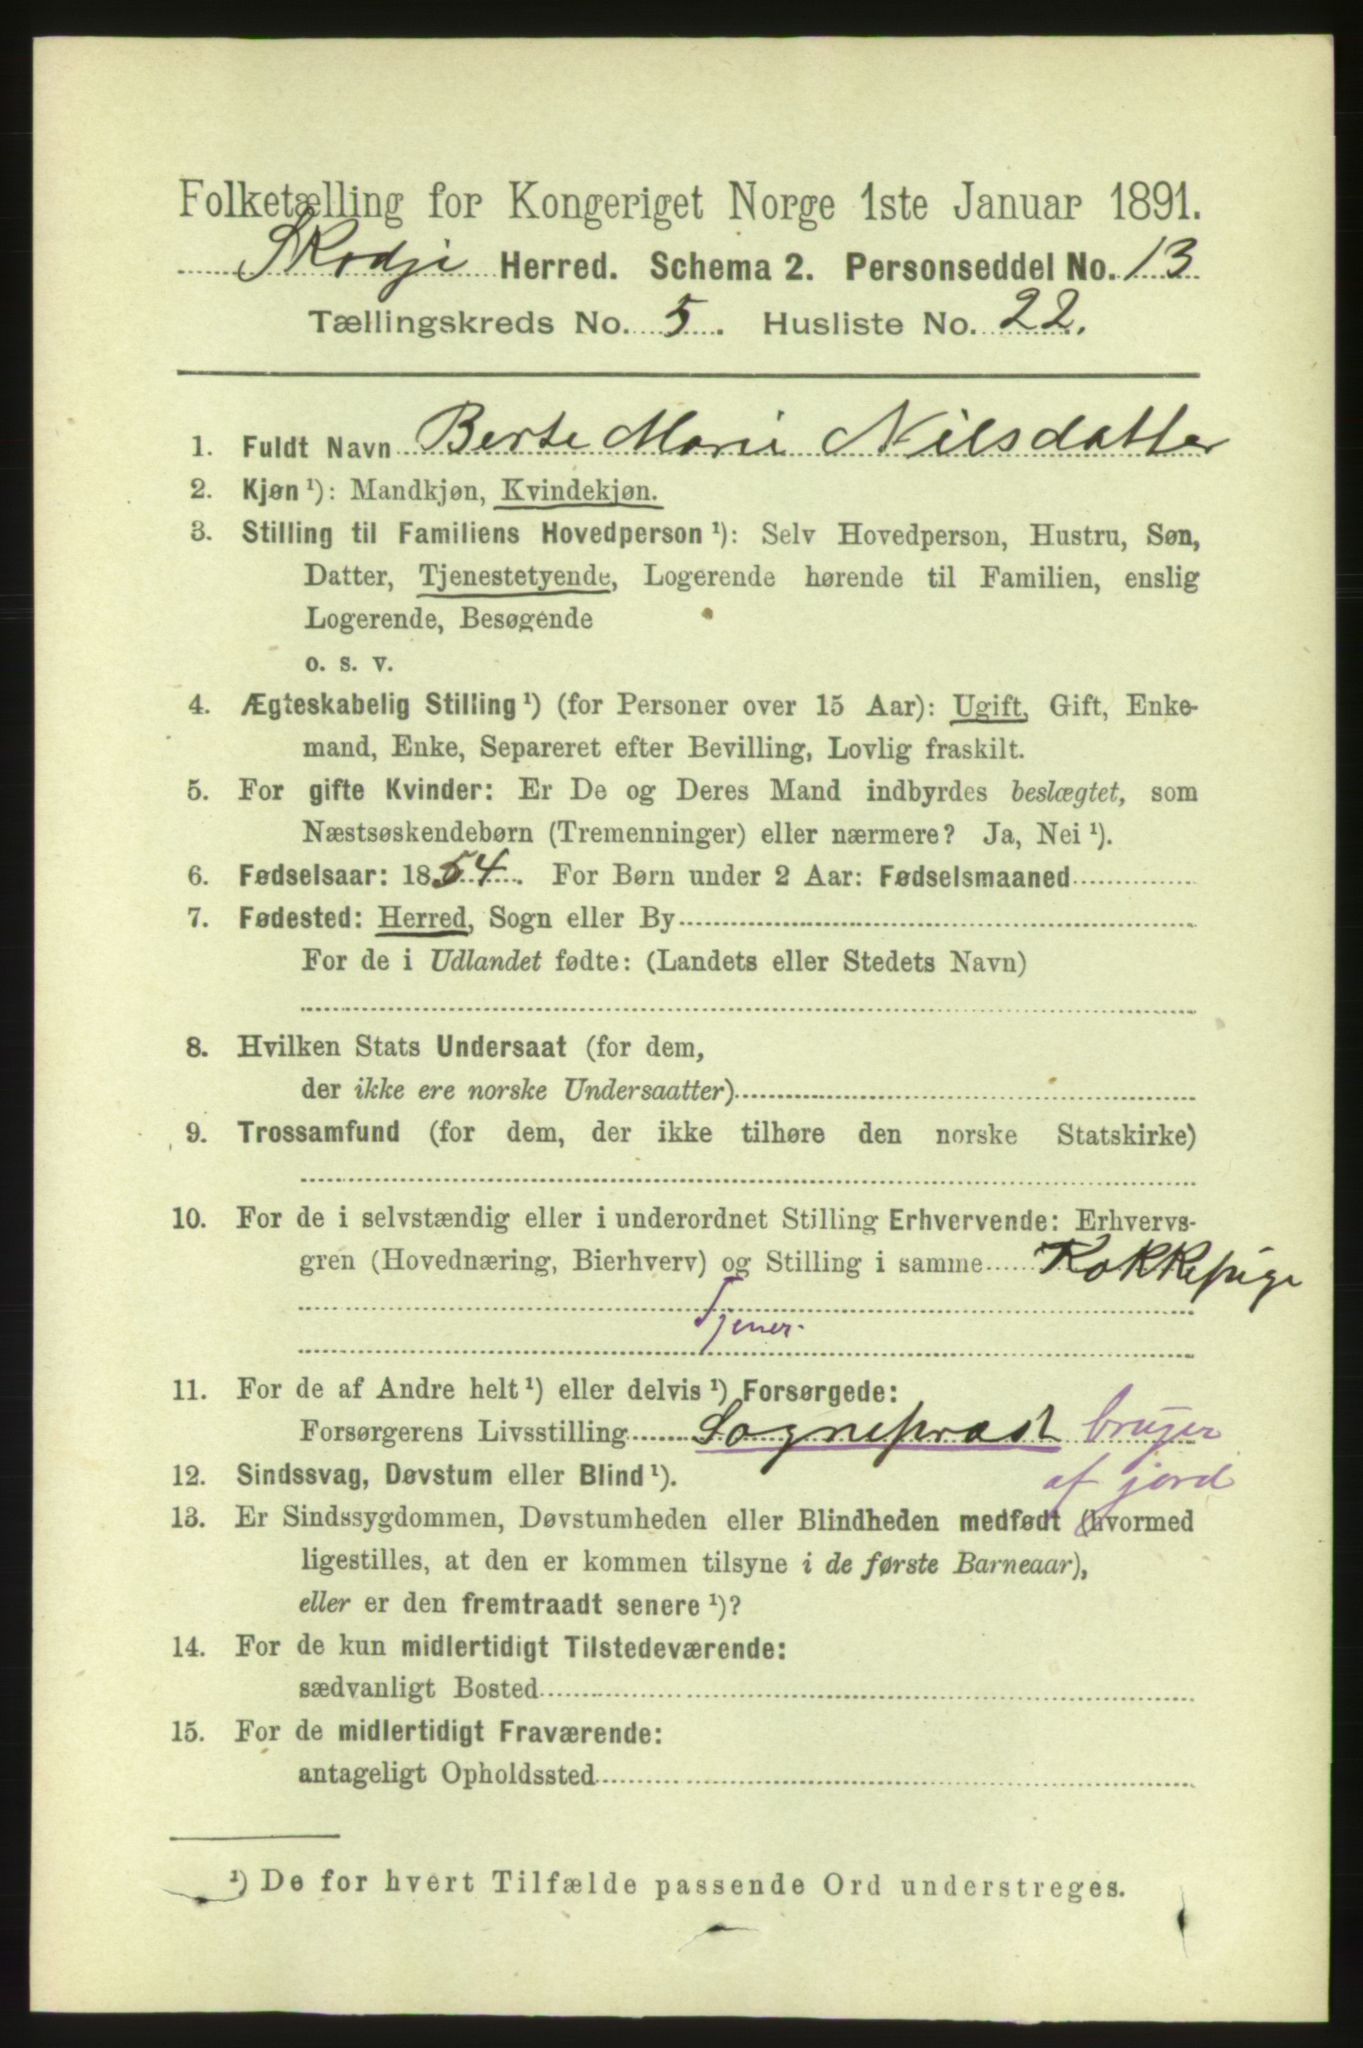 Folketælling for Kongeriget Norge 1ste Januar 1891.
Skodje Herred. Schema 2. Personseddel No. 13
Tællingskreds No. 5. Husliste No. 22.
1. Fuldt Navn Berte Marie Nilsdatter
2. Kjøn ¹): Mandkjøn, Kvindekjøn.
3. Stilling til Familiens Hovedperson ¹): Selv Hovedperson, Hustru, Søn,
Datter, Tjenestetyende, Logerende hørende til Familien, enslig
Logerende, Besøgende
o. s. v.
4. Ægteskabelig Stilling ¹) (for Personer over 15 Aar): Ugift, Gift, Enke-
mand, Enke, Separeret efter Bevilling, Lovlig fraskilt.
5. For gifte Kvinder: Er De og Deres Mand indbyrdes beslægtet, som
Næstsøskendebørn (Tremenninger) eller nærmere? Ja, Nei ¹).
6. Fødselsaar: 1854. For Børn under 2 Aar: Fødselsmaaned
7. Fødested: Herred, Sogn eller By
For de i Udlandet fødte: (Landets eller Stedets Navn)
8. Hvilken Stats Undersaat (for dem,
der ikke ere norske Undersaatter)
9. Trossamfund (for dem, der ikke tilhøre den norske Statskirke)
10. For de i selvstændig eller i underordnet Stilling Erhvervende: Erhvervs-
gren (Hovednæring, Bierhverv) og Stilling i samme Kokkepige
Tjener.
11. For de af Andre helt ¹) eller delvis ¹) Forsørgede:
Forsørgerens Livsstilling Sognepræst bruger
af jord
12. Sindssvag, Døvstum eller Blind ¹).
13. Er Sindssygdommen, Døvstumheden eller Blindheden medfødt (hvormed
ligestilles, at den er kommen tilsyne i de første Barneaar),
eller er den fremtraadt senere ¹)?
14. For de kun midlertidigt Tilstedeværende:
sædvanligt Bosted
15. For de midlertidigt Fraværende:
antageligt Opholdssted
¹) De for hvert Tilfælde passende Ord understreges.